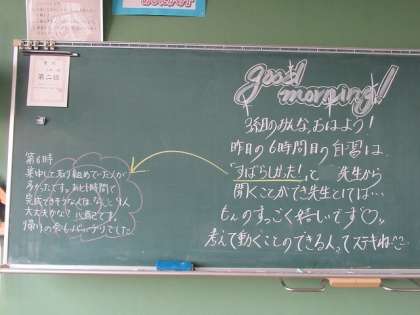 第二回
good
morning!
3組のみんな、おはよう!
昨日の6時間目の自習は
「すばらしかった!」って 先生から
聞くことができ先生としては…
ものすっごく嬉しいです♡。
考えて動くことのできる人ってステキね
第6時
集中して取り組めていた人が
多かったです。あと1時間で
完成できそうな人は、なんと9人
大丈夫かな? 心配です。
帰りの会もバッチリでした